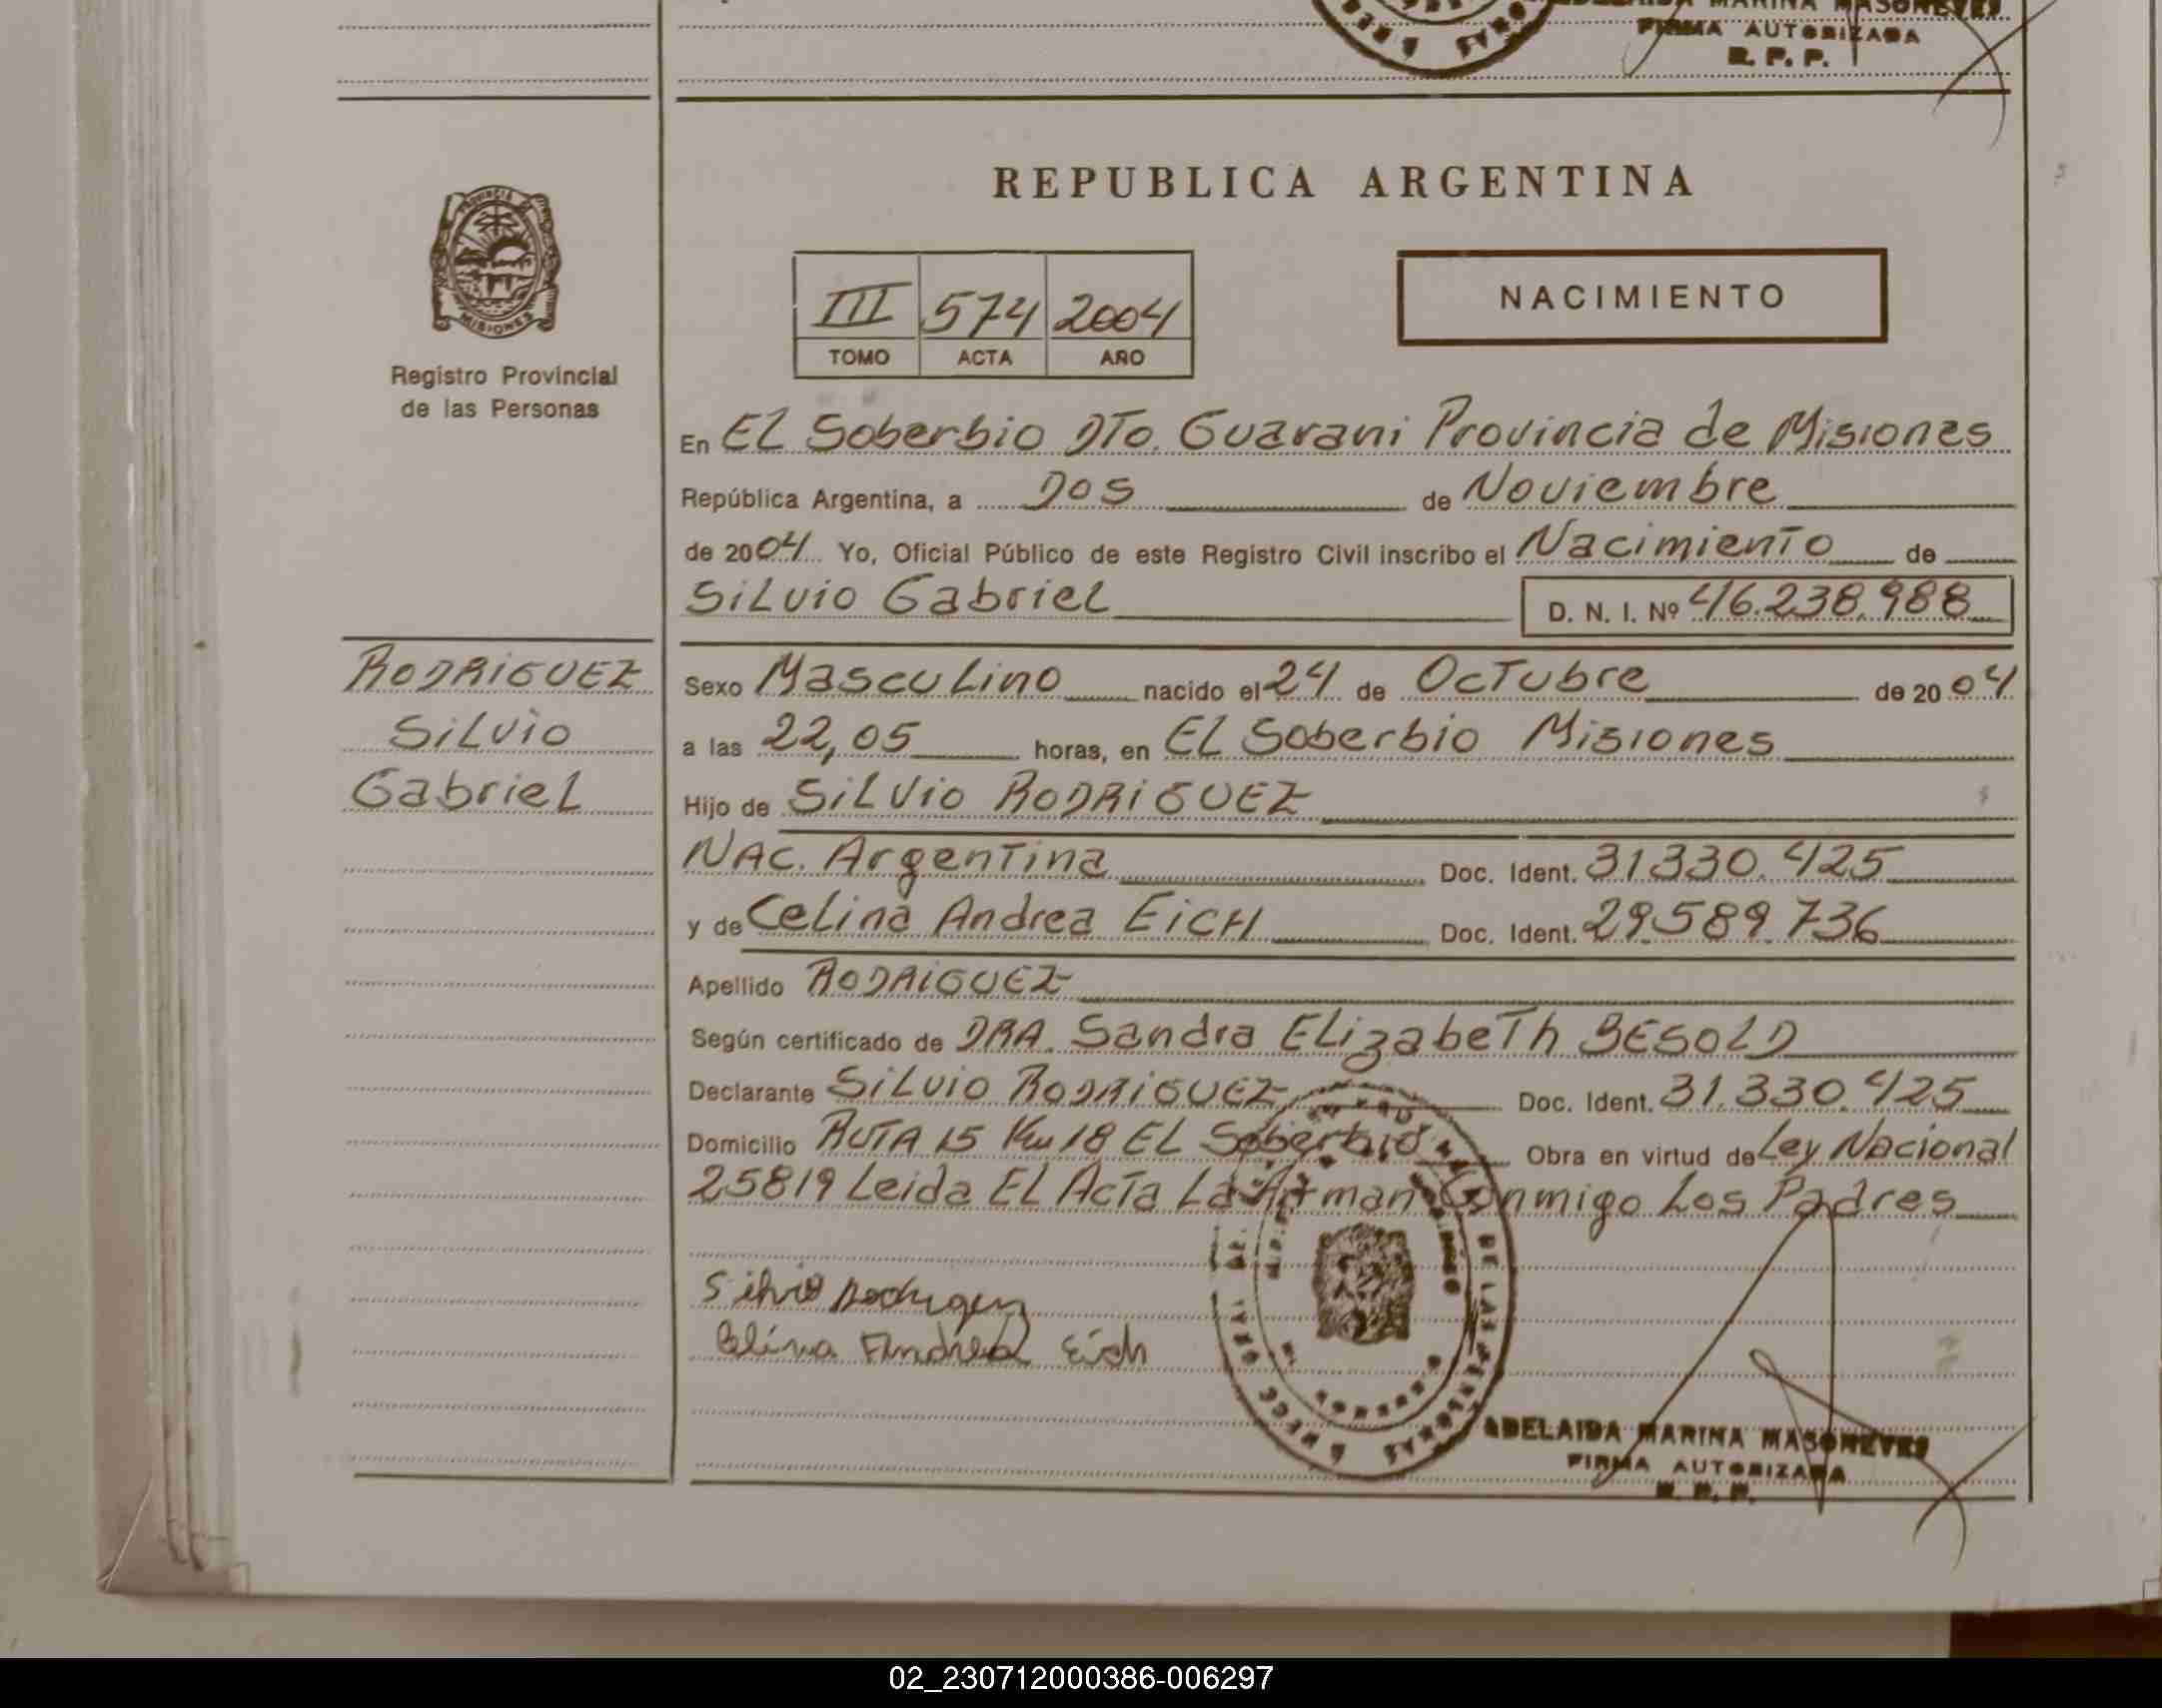 MARINA MASONEVES
FIRMA AUTORIZADA
R. P. P.
PROVINCIA
MISIONES
Registro Provincial
de las Personas
REPUBLICA ARGENTINA
III 574 2004
TOMO ACTA AÑO
NACIMIENTO
En EL Soberbio DTo. Guarani Provincia de Misiones
República Argentina, a Dos de Noviembre
de 2004 Yo, Oficial Público de este Registro Civil inscribo el Nacimiento de
SiLvio GabrieL D. N. I. Nº 46.238.988
RODRIGUEZ
SiLvio
GabrieL
Sexo MascuLino nacido el 24 de OcTubre de 2004
a las 22,05 horas, en EL Soberbio Misiones
Hijo de SiLvio RODRIGUEZ
NAC. ArgenTina Doc. Ident. 31330.425
y de CeLina Andrea EiCH Doc. Ident. 29.589.736
Apellido RODRIGUEZ
Según certificado de DRA. Sandra ELizabeTh BESOLD
Declarante SiLvio RODRIGUEZ Doc. Ident. 31.330.425
Domicilio RUTA 15 Km 18 EL Soberbio Obra en virtud de Ley Nacional
25819 Leida EL AcTa La Firman Conmigo Los Padres
Silvio Rodriguez
Celina Andrea Eich
DE LAS PERSONAS
ADELAIDA MARINA MASONEVES
FIRMA AUTORIZADA
R. P. P.
02_230712000386-006297